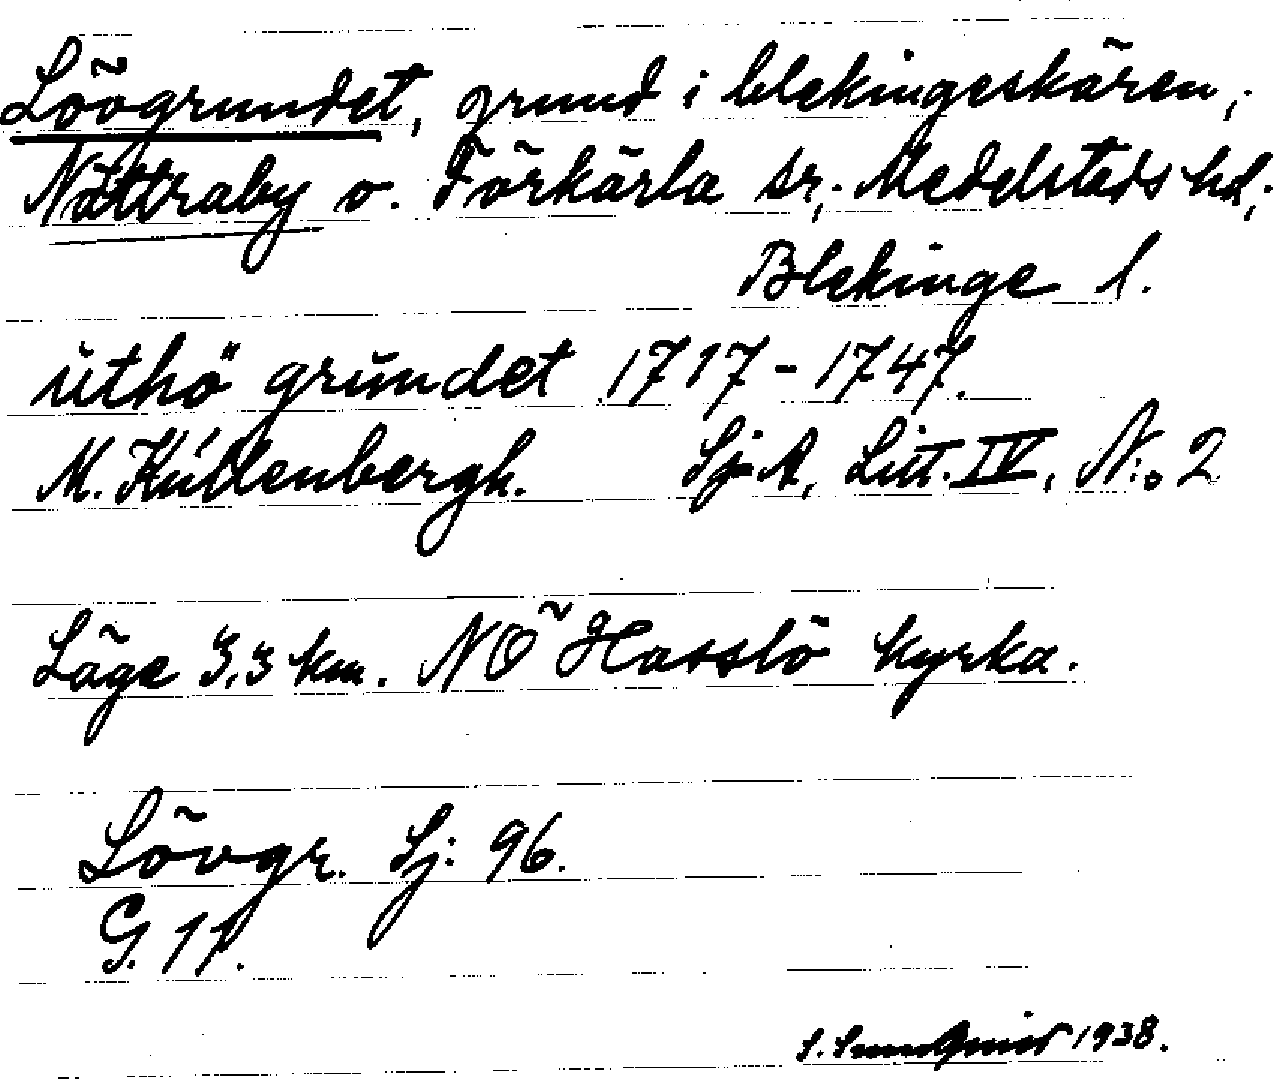 Lövgrundet, grund i blekingeskären,
Nättraby o. Förkärla sr, Medelstads hd,
Blekinge l.
uthö grundet 1717-1747.
M. Kullenbergh. Sj A, Litt. IV, N:o 2
Läge 3,3 km. NÖ Hasslö kyrka.
Lövgr. Sj: 96.
G. 11.
S. Sundqvist 1938.